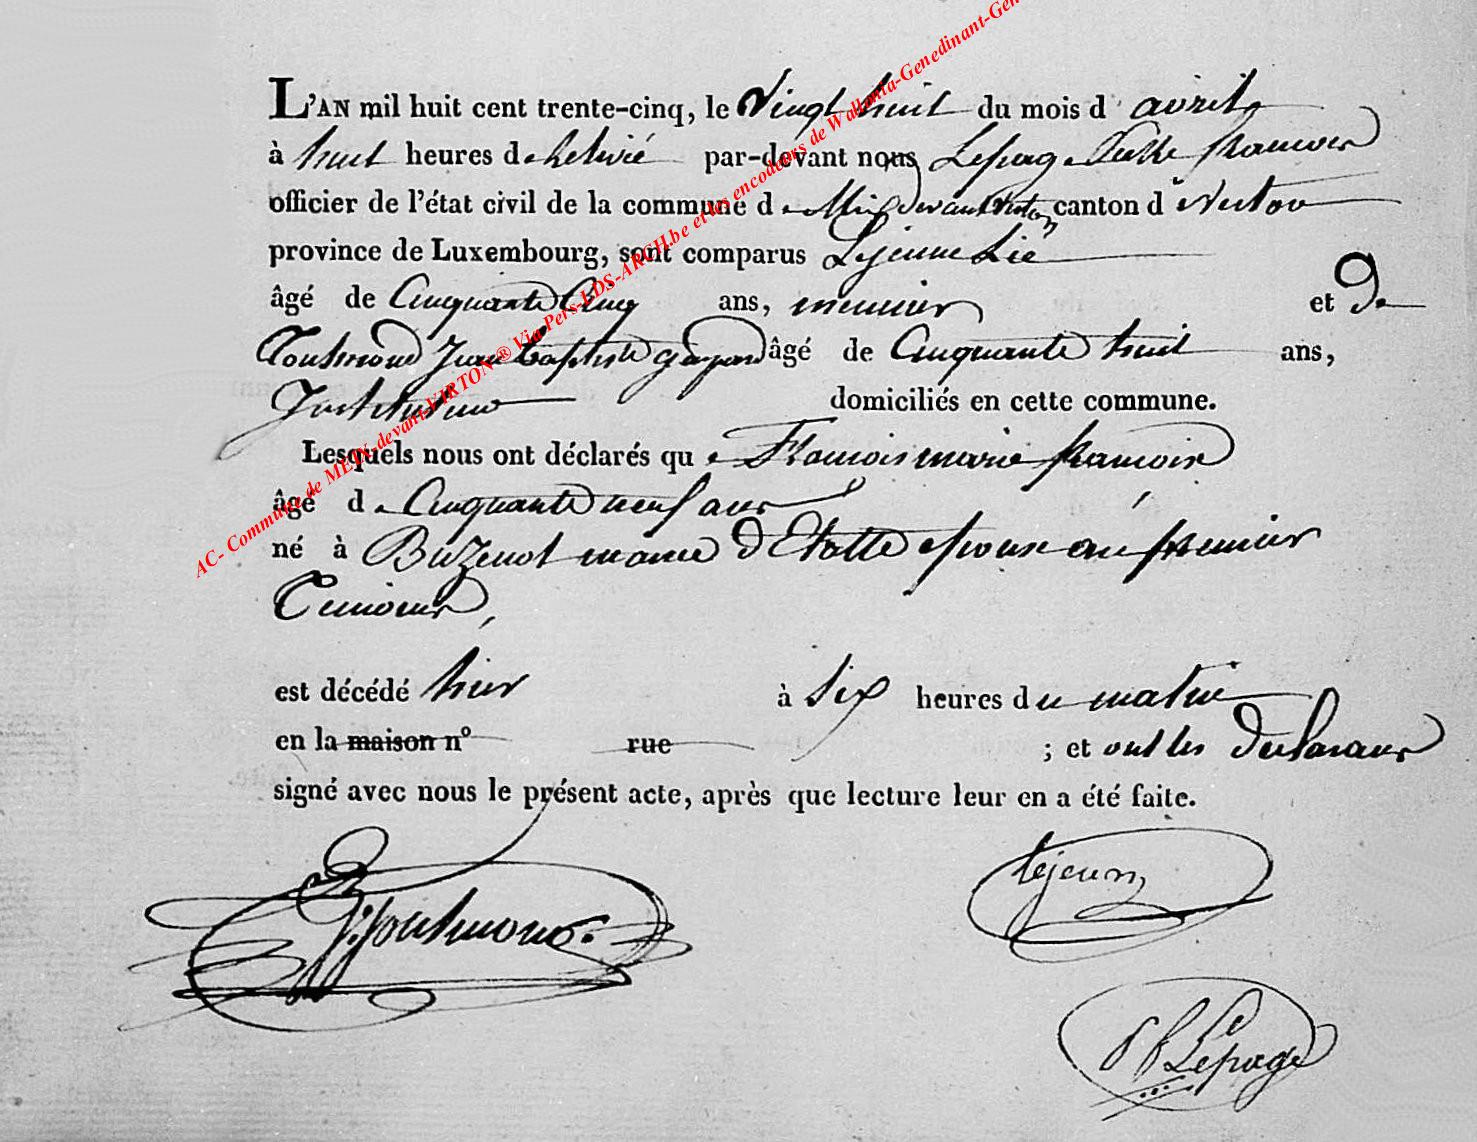 L'AN mil huit cent trente-cinq, le vingt huit du mois d'avril
à huit heures de relevé par-devant nous Lepage François
officier de l'état civil de la commune de Meix devant Virton canton de Virton
province de Luxembourg, sont comparus Lejeune Lié
âgé de Cinquante Cinq ans, meunier et De
Jean baptiste gaspard âgé de Cinquante huit ans,
Instituteur domiciliés en cette commune.
Lesquels nous ont déclarés que François marie françois
âgé de Cinquante neuf ans
né à Buzenol mairie d'Etalle époux en premier
est décédé hier à six heures du matin
en la maison nº rue ; et ont les déclarans
signé avec nous le présent acte, après que lecture leur en a été faite.
Lejeune
Lepage
AC- Commune de MEIX-devant-VIRTON® Via Pers-LDS-ARCH.be et les encodeurs de Wallonia-Genedinant-Gen